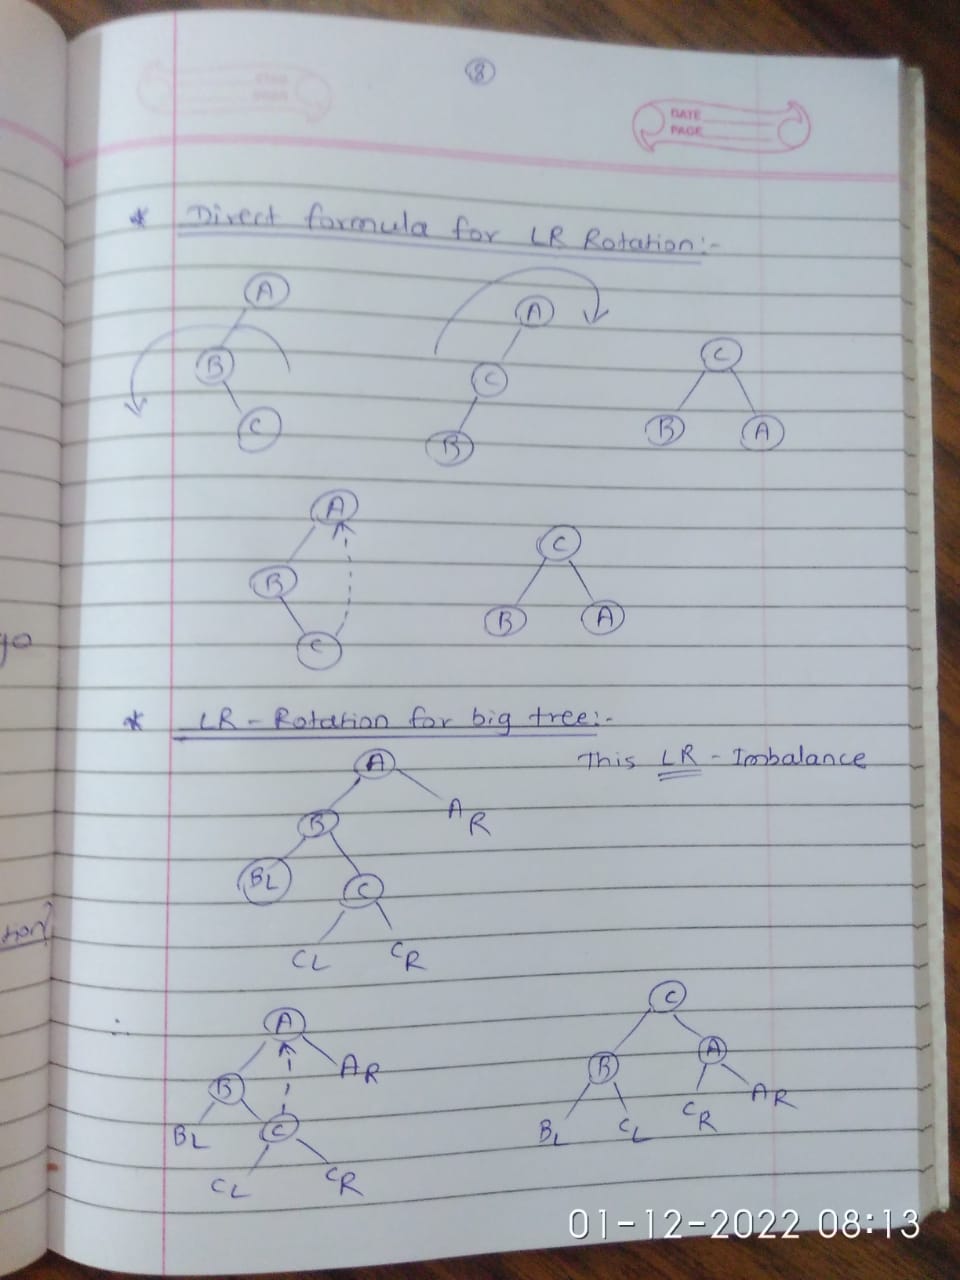 8
DATE
PAGE
* Direct formula for LR Rotation:-
A
B
C
A
C
B
C
B
A
A
B
C
C
B
A
go
* LR - Rotation for big tree:-
This LR - Imbalance
A
B
AR
BL
C
CL
CR
∴
A
B
AR
BL
C
CL
CR
C
B
A
BL
CL
CR
AR
01-12-2022 08:13